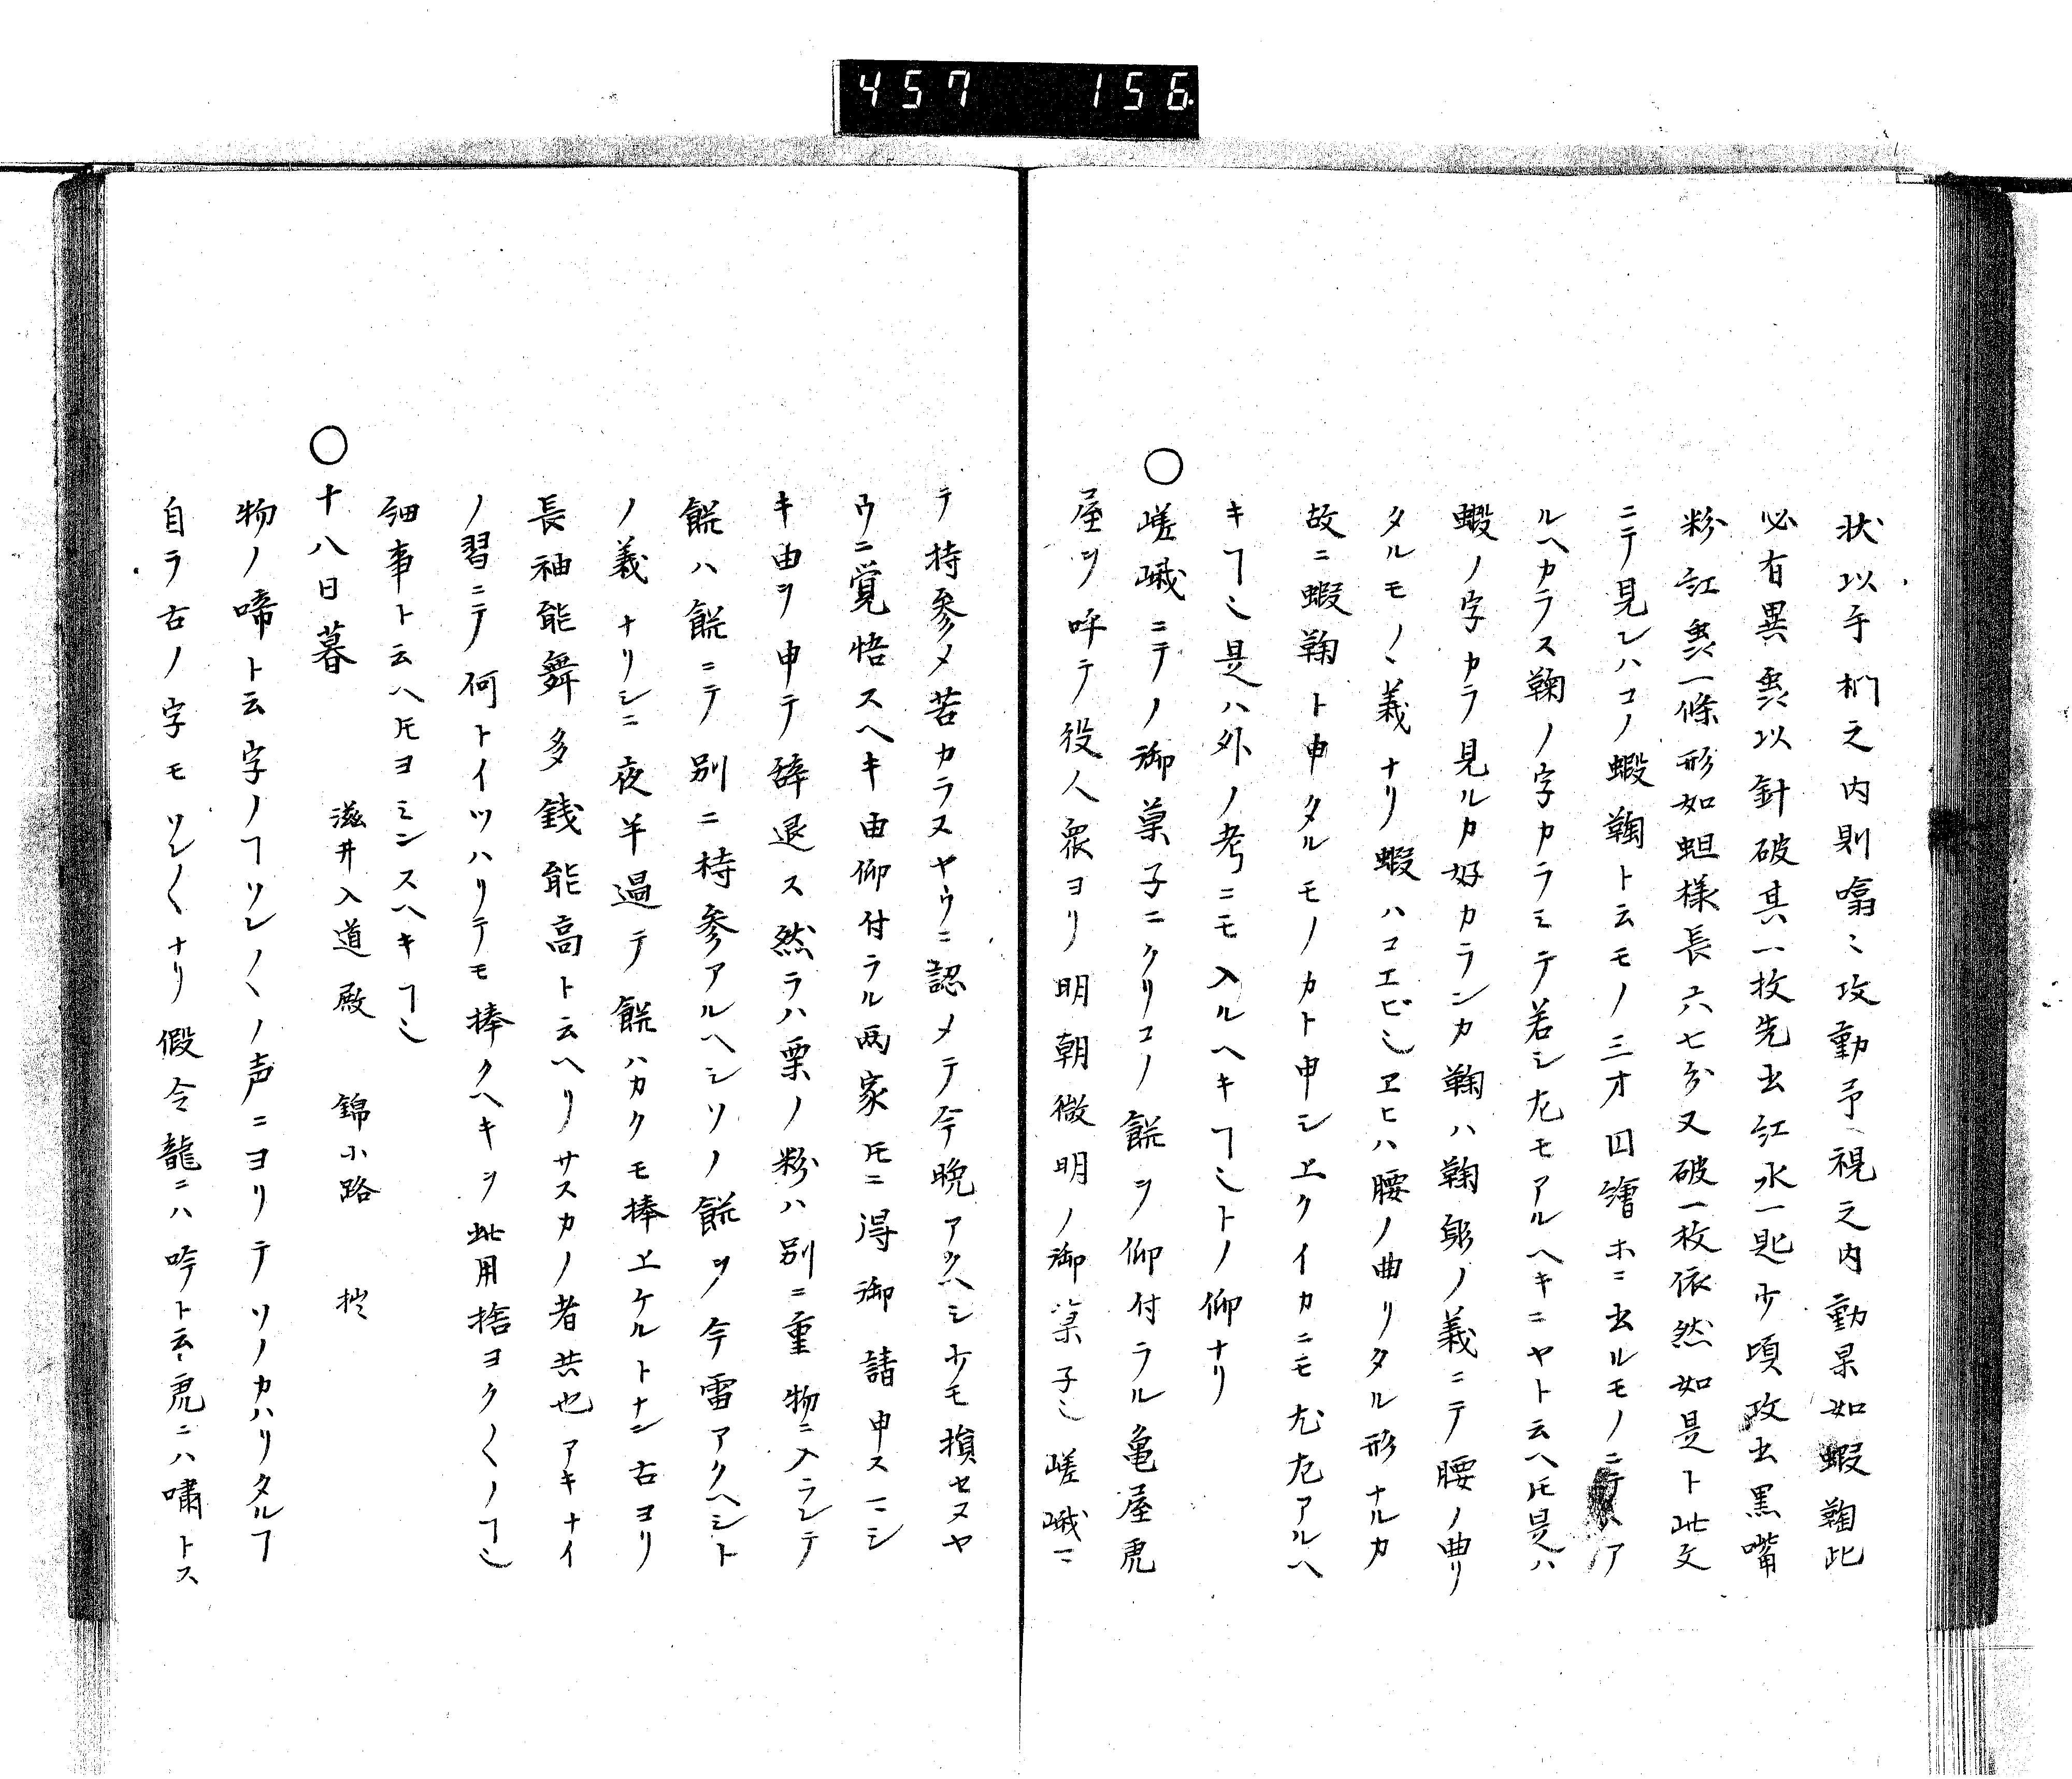 457 156
状以手椚之内則噏〻攻動予視之内動果如蝦鞠此
必有異熏以針破其一枚先出江水一匙少頃攻出黒嘴
粉江熏一條形如蛆様長六七分又破一枚依然如是ト此文
ニテ見レハコノ蝦鞠ト云モノ三才図繪ホニ出ルモノニテハア
ルヘカラス鞠ノ字カラミテ若シ尤モアルヘキニヤト云ヘ𪜈是ハ
蝦ノ字カラ見ルカ好カランカ鞠ハ鞠躬ノ義ニテ腰ノ曲リ
タルモノヽ義ナリ蝦ハコエビ也ヱヒハ腰ノ曲リタル形ナルカ
故ニ蝦鞠ト申タルモノカト申シ上クイカニモ尤〻アルヘ
キヿ也是ハ外ノ考ニモ入ルヘキヿ也トノ仰ナリ
○嵯峨ニテノ御菓子ニクリコノ餻ヲ仰付ラル亀屋虎
屋ヲ呼テ役人衆ヨリ明朝微明ノ御菓子也嵯峨ニ
テ持参メ苦カラヌヤウニ認メテ今晩アクヘシ少モ損セヌヤ
ウニ覚悟スヘキ由仰付ラル両家𪜈ニ得御請申スマシ
キ由ヲ申テ辞退ス然ラハ栗ノ粉ハ別ニ重物ニ入ラレテ
餻ハ餻ニテ別ニ持参アルヘシソノ餻ヲ今霄アクヘシト
ノ義ナリシニ夜半過テ餻ハカクモ捧上ケルトナン古ヨリ
長袖能舞多銭能高ト云ヘリサスカノ者共也アキナイ
ノ習ニテ何トイツハリテモ捧クヘキヲ此用捨ヨク〱ノヿ也
細事ト云ヘ𪜈ヨミンスヘキヿ也
○十八日暮 滋井入道殿 錦小路 拦
物ノ啼ト云字ノヿソレ〱ノ声ニヨリテソノカハリタルヿ
自ラ古ノ字モソレ〱ナリ假令龍ニハ吟ト云虎ニハ嘯トス